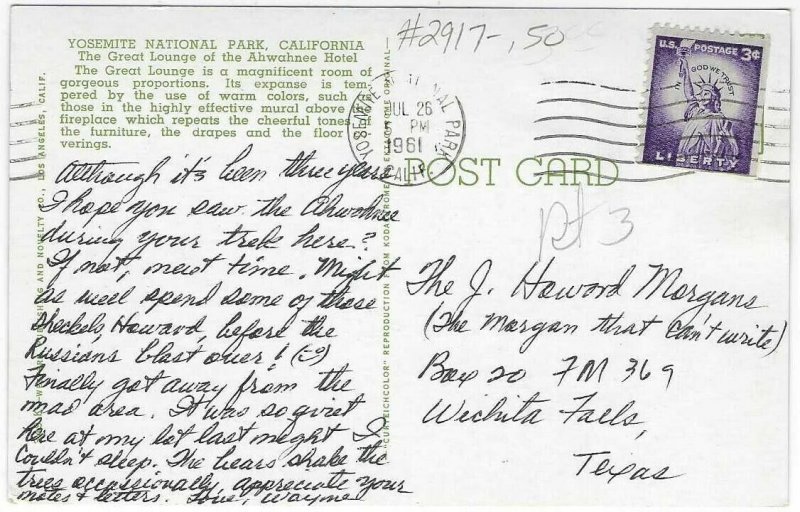 YOSEMITE NATIONAL PARK, CALIFORNIA
The Great Lounge of the Ahwahnee Hotel
The Great Lounge is a magnificent room of
gorgeous proportions. Its expanse is tem-
pered by the use of warm colors, such as
those in the highly effective mural above the
fireplace which repeats the cheerful tones of
the furniture, the drapes and the floor
verings.
#2917-,50
YOSEMITE NATIONAL PARK
JUL 26
PM
1961
CALIF.
U.S. POSTAGE 3¢
IN GOD WE TRUST
LIBERTY
POST CARD
pt 3
Although it's been three years
I hope you saw the Ahwahnee
during your trek here?
If not, next time. Might
as well spend some of those
sheckels, Howard, before the
Russians blast over!
Finally got away from the
mad area. It was so quiet
here at my lot last night I
couldn't sleep. The bears shake the
trees occassionally, appreciate your
notes & letters. Love, Wayne
The J. Howard Morgans
(The Morgan that can't write)
Box 20 FM 369
Wichita Falls,
Texas
LOS ANGELES, CALIF.
AND NOVELTY CO.,
"CURTEICHCOLOR" REPRODUCTION FROM KODACHROME
ORIGINAL